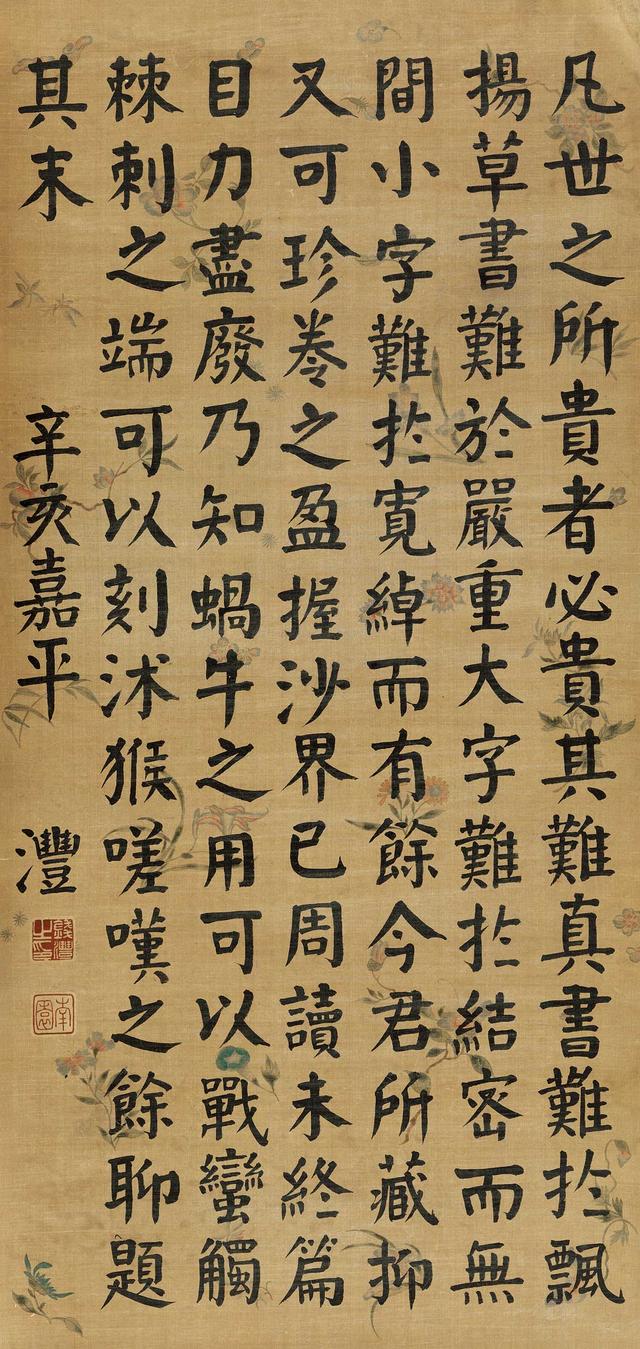 凡世之所貴者必貴其難真書難扵飄
揚草書難於嚴重大字難扵結密而無
間小字難扵寬綽而有餘今君所藏抑
又可珍卷之盈握沙界已周讀未終篇
目力盡廢乃知蝸牛之用可以戰蠻觸
棘刺之端可以刻沭猴嗟嘆之餘聊題
其末 辛亥嘉平 灃
錢灃之印
南園